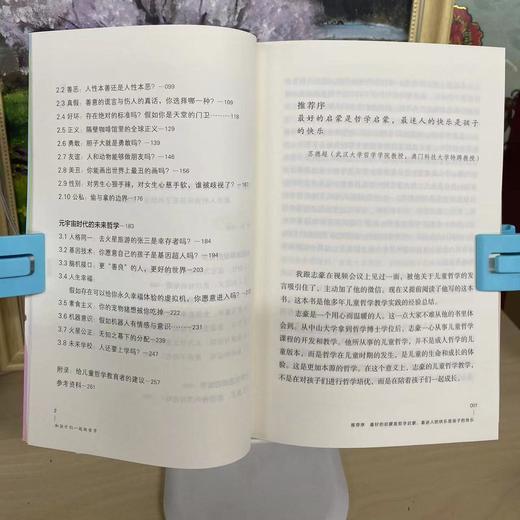 2.2 善恶：人性本善还是人性本恶？—099
2.3 真假：善意的谎言与伤人的真话，你选择哪一种？—109
2.4 好坏：存在绝对的标准吗？假如你是天堂的门卫………118
2.5 正义：隔壁咖啡馆里的全球正义—129
2.6 勇敢：胆子大就是勇敢吗？—139
2.7 友谊：人和动物能够做朋友吗？—148
2.8 美丑：你能画出世界上最丑的画吗？—158
2.9 性别：对男生心狠手辣，对女生心慈手软，谁被歧视了？—168
2.10 公私：偷与拿的边界—176
元宇宙时代的未来哲学—183
3.1 人格同一：去火星旅游的张三是幸存者吗？—184
3.2 基因技术：你愿意自己的孩子是基因超人吗？—194
3.3 脑机接口：更“善良”的人，更好的世界—203
3.4 人生幸福：
假如存在可以给你永久幸福体验的虚拟机，你愿意进入吗？—213
3.5 素食主义：你的宠物猪想被你吃掉—222
3.6 机器意识：假如机器人有情感与意识—231
3.7 火星公正：无知之幕下的分配—239
3.8 未来学校：人还要上学吗？—247
附录：给儿童哲学教育者的建议—257
参考资料—261
2
和孩子们一起做哲学
推荐序
最好的启蒙是哲学启蒙，最迷人的快乐是孩子
的快乐
苏德超（武汉大学哲学学院教授，澳门科技大学特聘教授）
我跟志豪在视频会议上见过一面，被他关于儿童哲学的发
言吸引住了，主动加了他的微信。现在又提前阅读了他写的这本
书。这本书是他多年儿童哲学教学实践的经验总结。
志豪是一个用心而温暖的人。这一点大家不难从他的书里体
会到。从中山大学拿到哲学博士学位后，志豪一心从事儿童哲学
课程的开发和教学。他所从事的儿童哲学，并不是成人哲学的儿
童版本，而是哲学在儿童时期的发生，是儿童的生命和成长的体
悟。这是更加本源的哲学。在这个意义上，志豪的儿童哲学教学，
不是在对孩子们进行哲学培优，而是在陪着孩子们一起成长。
001
推荐序 最好的启蒙是哲学启蒙，最迷人的快乐是孩子的快乐